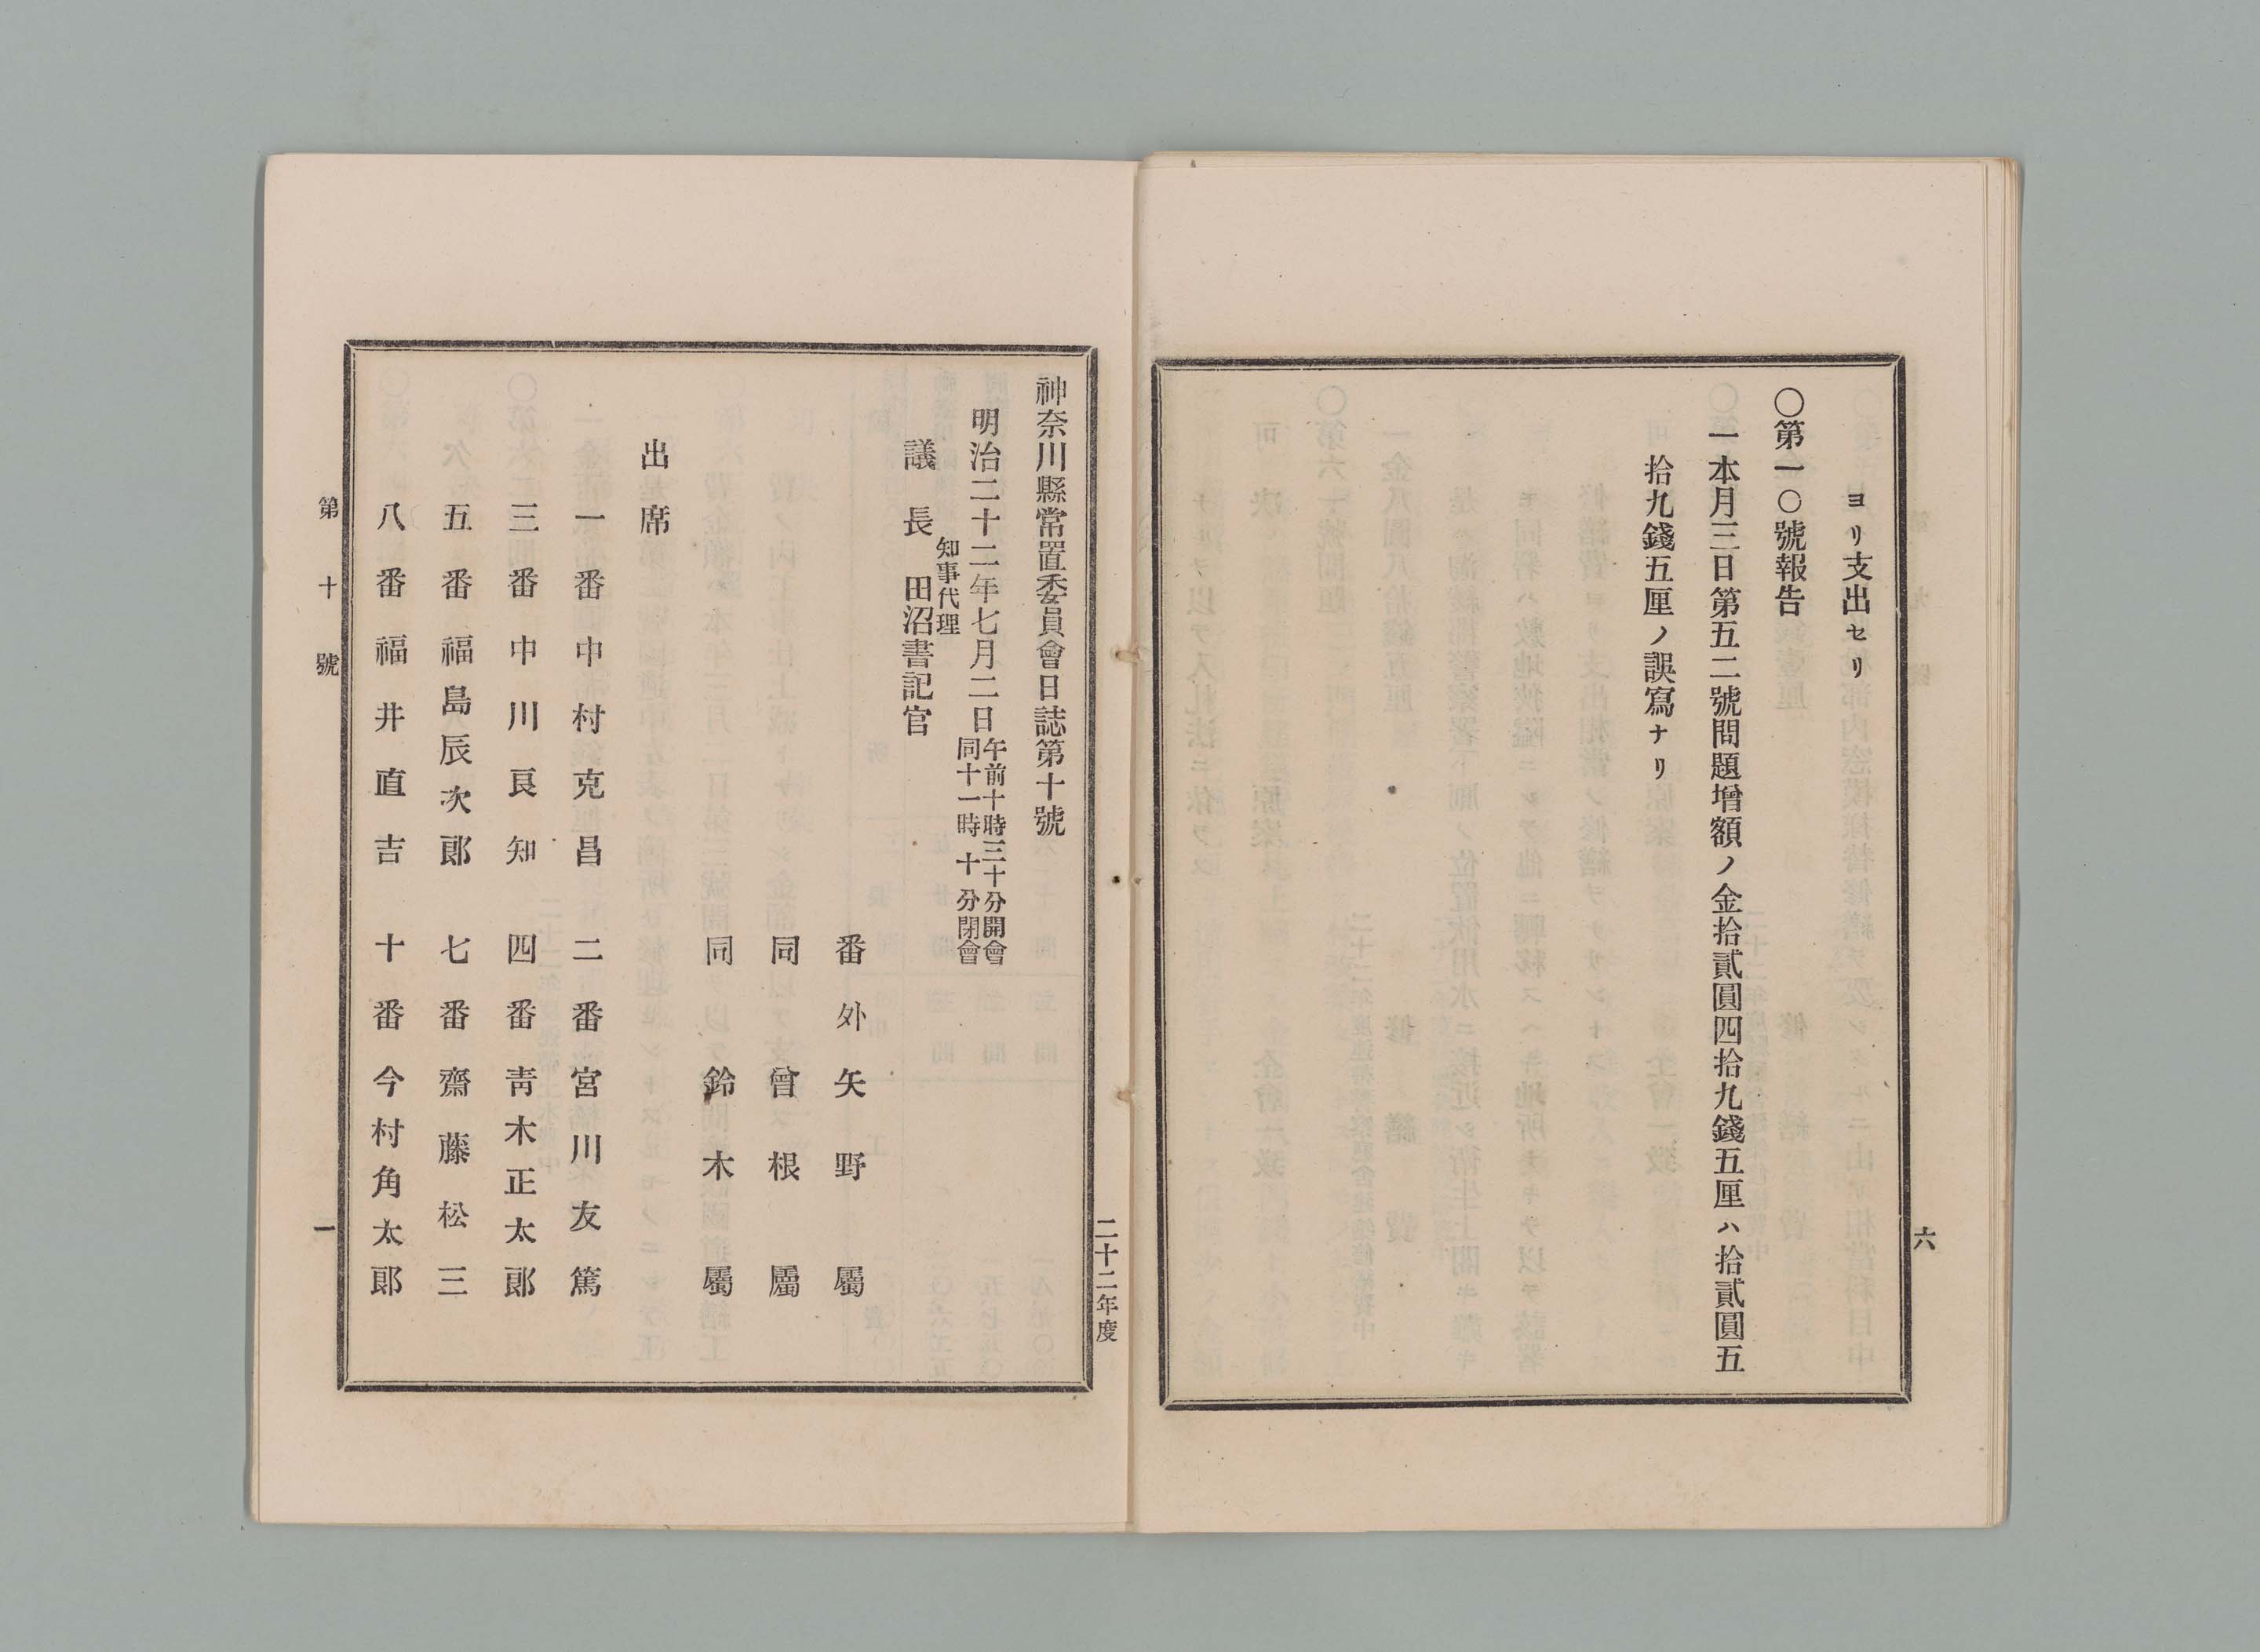 ヨリ支出セリ
〇第一〇號報告
一本月三日第五二號問題增額ノ金拾貳圓四拾九錢五厘ハ拾貳圓五
拾九錢五厘ノ誤寫ナリ
六
二十二年度
神奈川縣常置委員會日誌第十號
明治二十二年七月二日午前十時三十分開會
同十一時十分閉會
知事代理
議長 田沼書記官
番外 矢野屬
同 曾根屬
同 鈴木屬
出席
一番 中村克昌 二番 宮川友篤
三番 中川良知 四番 靑木正太郎
五番 福島辰次郎 七番 齋藤松三
八番 福井直吉 十番 今村角太郎
第十號
一